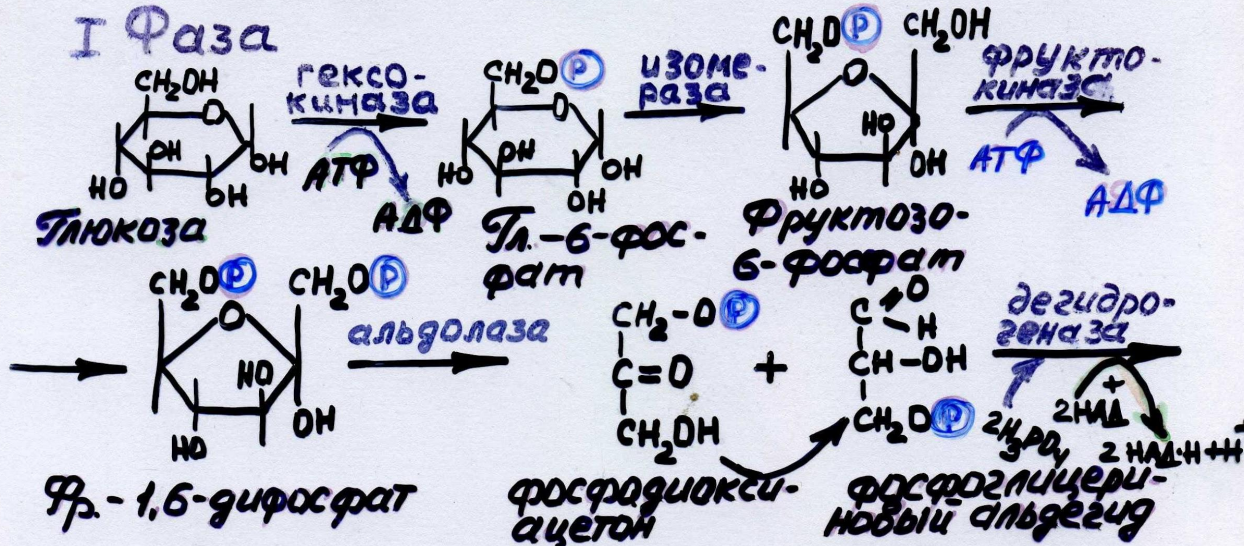 I Фаза
CH₂OH
O
OH
HO
OH
OH
Глюкоза
гексо-
киназа
АТФ
АДФ
CH₂OP
O
OH
HO
OH
OH
Гл.-6-фос-
фат
изоме-
раза
CH₂OP CH₂OH
O
HO
HO
OH
Фруктозо-
6-фосфат
фрукто-
киназа
АТФ
АДФ
CH₂OP CH₂OP
O
HO
HO
OH
Фр.-1,6-дифосфат
альдолаза
CH₂-OP
C=O
CH₂OH
фосфодиокси-
ацетон
+
C
O
H
CH-OH
CH₂OP
фосфоглицери-
новый альдегид
дегидро-
геназа
2H₃PO₄
2НАД⁺
2 НАД·H+H⁺